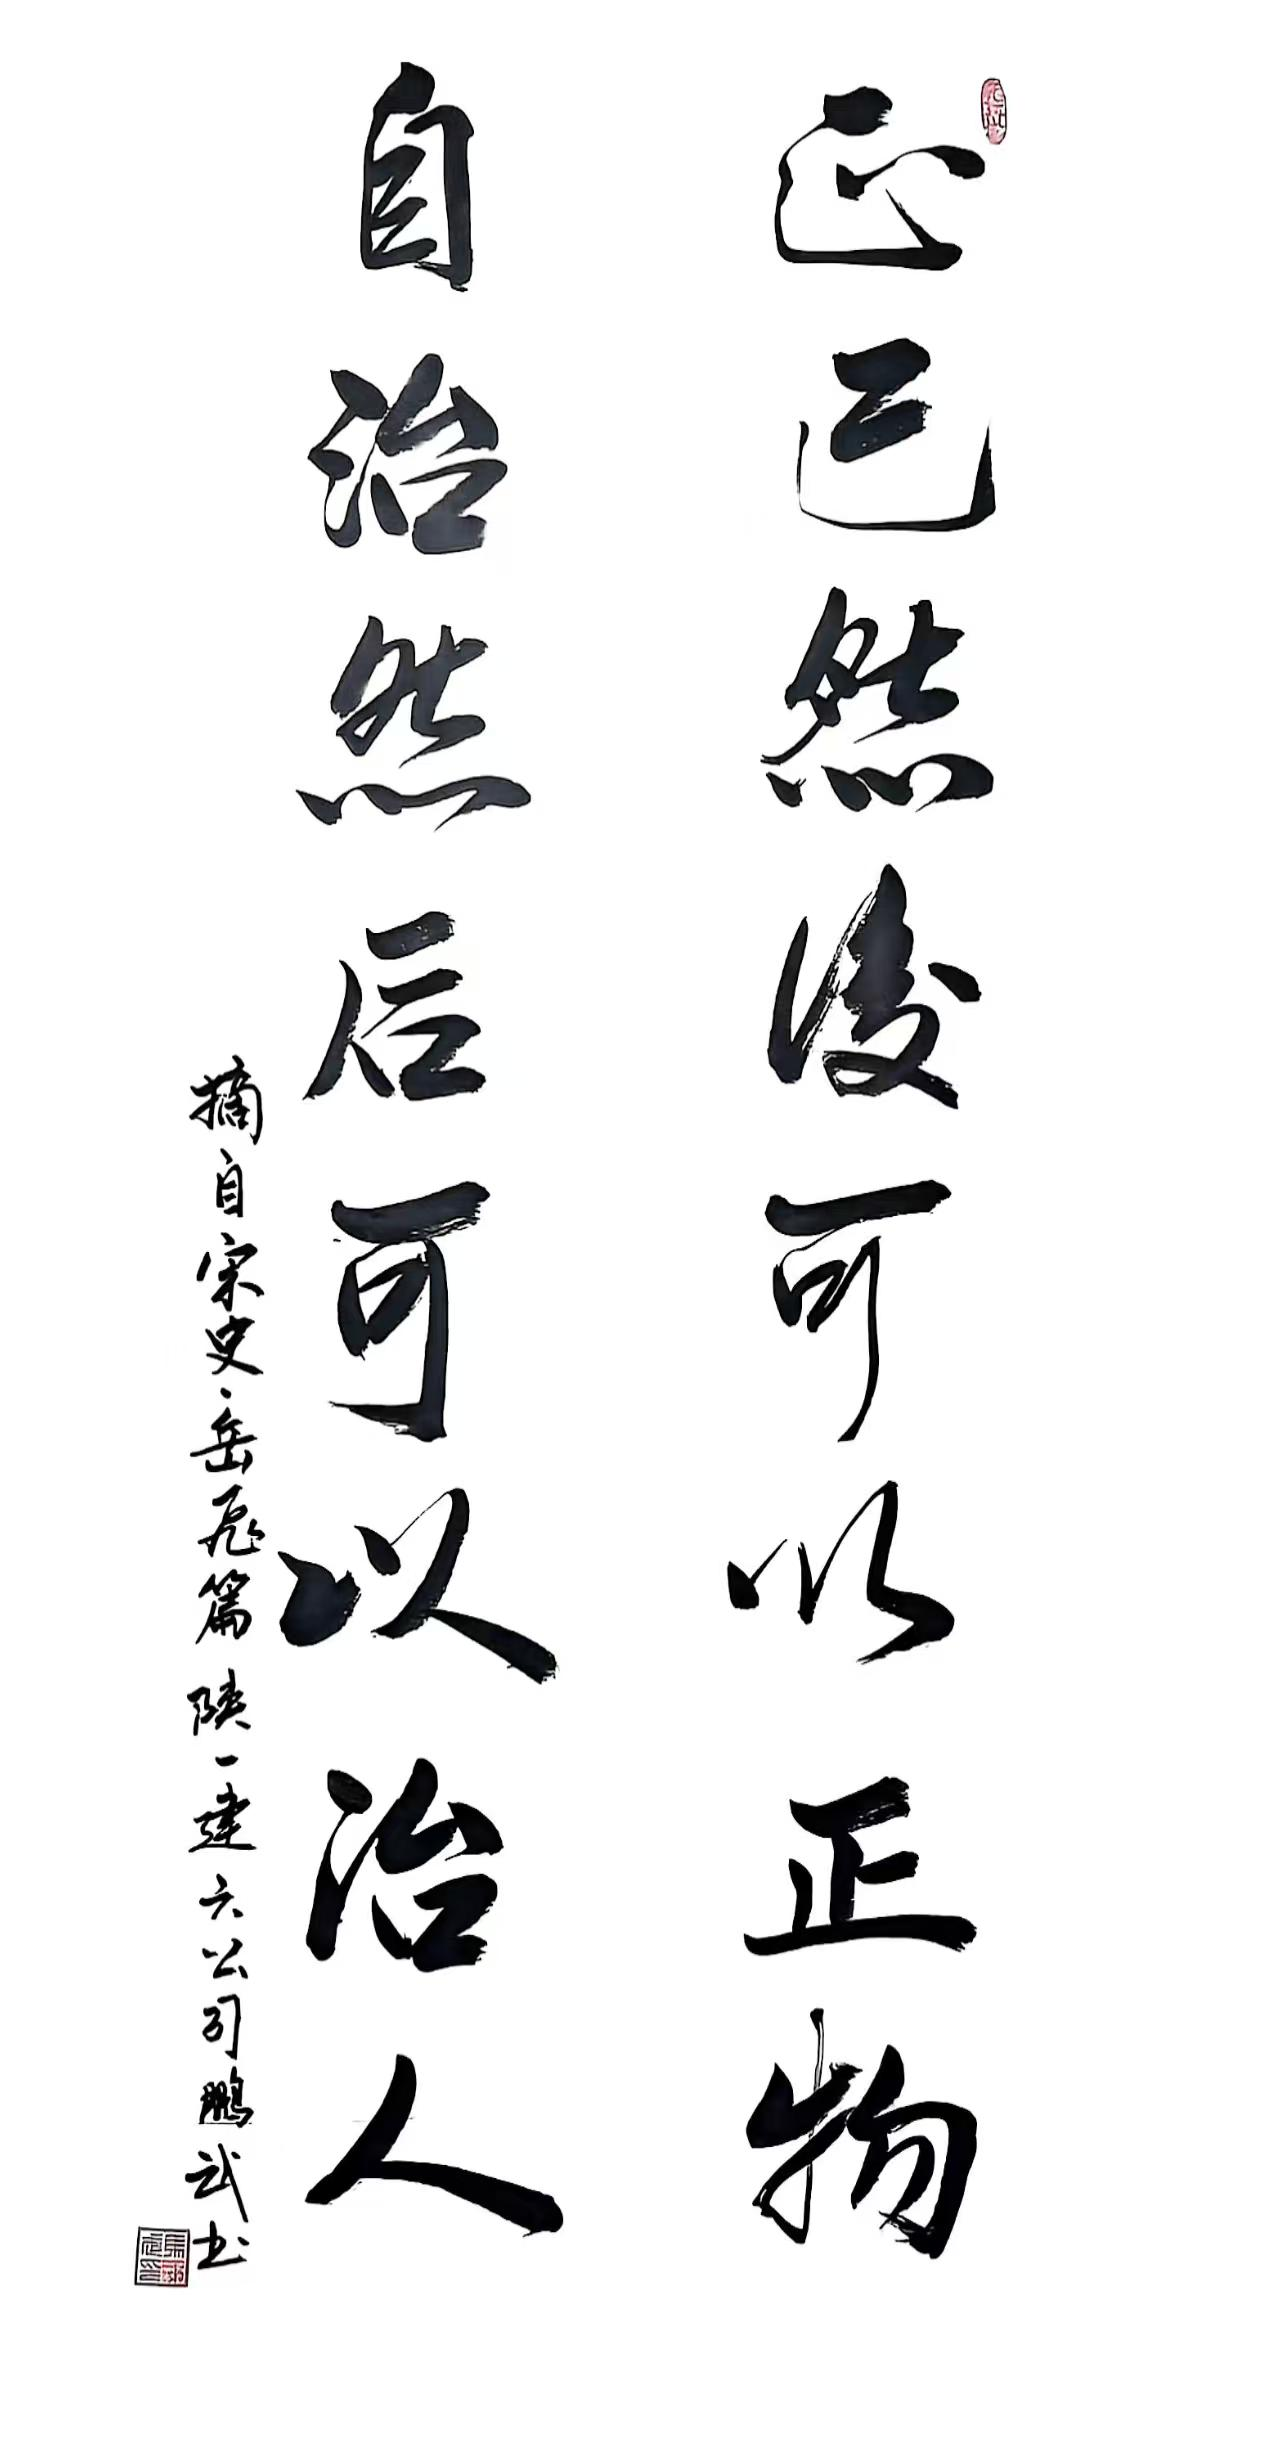 正己然後可以正物
自治然后可以治人
摘自宋史·岳飛篇 陕一建六公司鹏武书